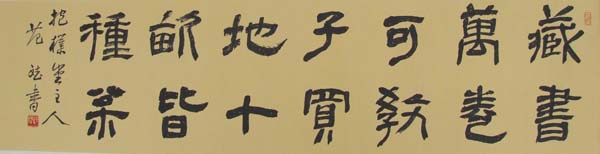 藏書
萬卷
可教
子買
地十
畝皆
種茶
抱樸堂主人
范
書